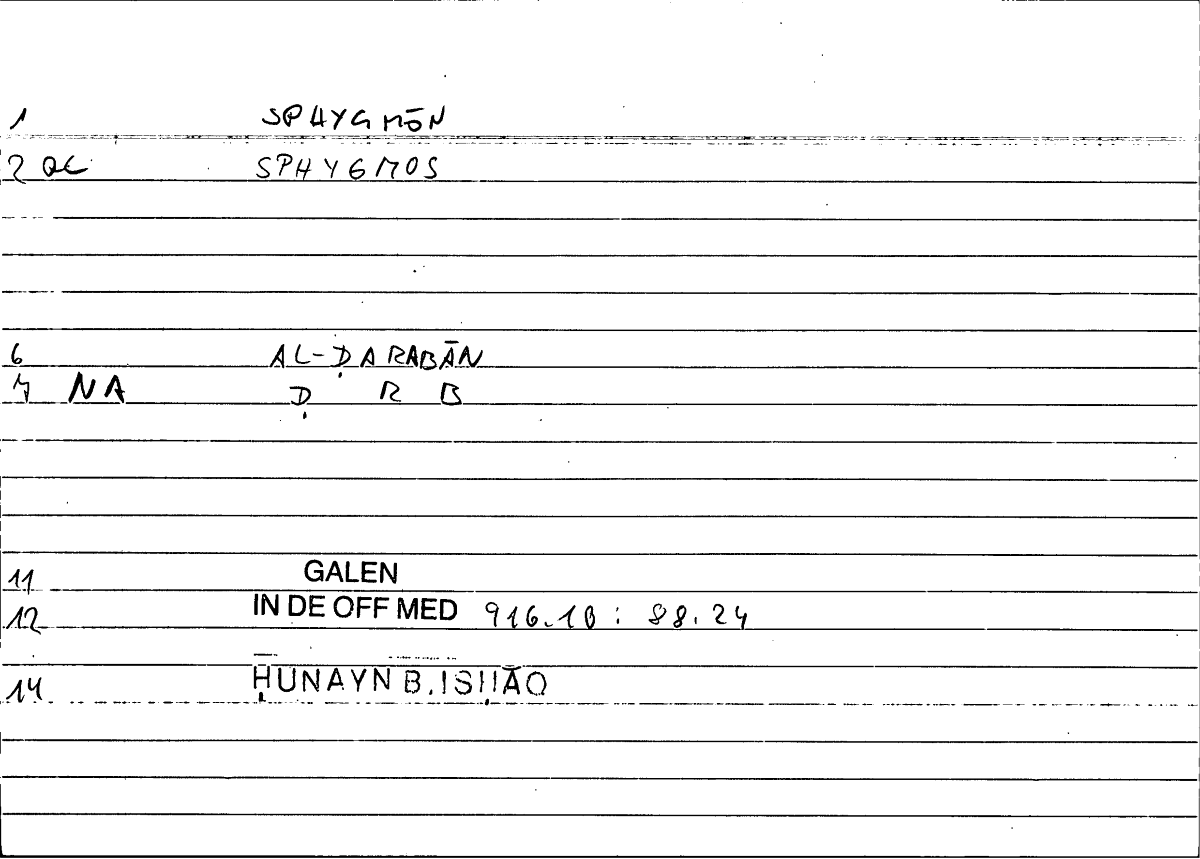 1 SPHYGMŌN
2 QC SPHYGMOS
6 AL-ḌARABĀN
7 NA Ḍ R B
11 GALEN
12 IN DE OFF MED 916.10 : 88.24
14 ḤUNAYN B. ISḤĀQ